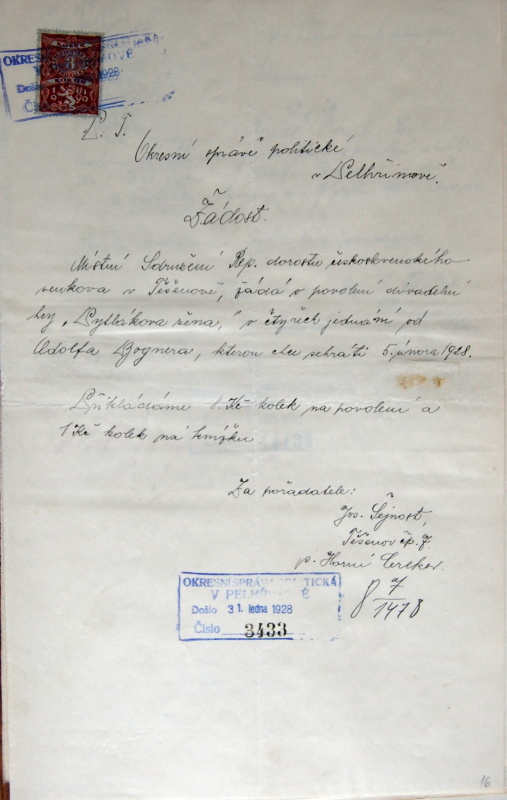 OKRESNÍ SPRÁVA POLITICKÁ
Došlo 1928
Číslo
KOLEK
3
1919
L. T.
Okresní správě politické
v Pelhřimově.
Žádost.
Místní Sdružení Rep. dorostu československého
venkova v Těšenově, žádá o povolení divadelní
hry „Pytlákova žena," o čtyřech jednání od
Adolfa Bognera, kterou chce sehráti 5. února 1928.
Přikládáme 8 Kč kolek na povolení a
1 Kč kolek na knížku.
Za pořadatele:
Jos. Šejnost,
Těšenov čp. 7
p. Horní Cerekev.
OKRESNÍ SPRÁVA POLITICKÁ
V PELHŘIMOVĚ
Došlo 31. ledna 1928
Číslo 3433
8 7/1478
16